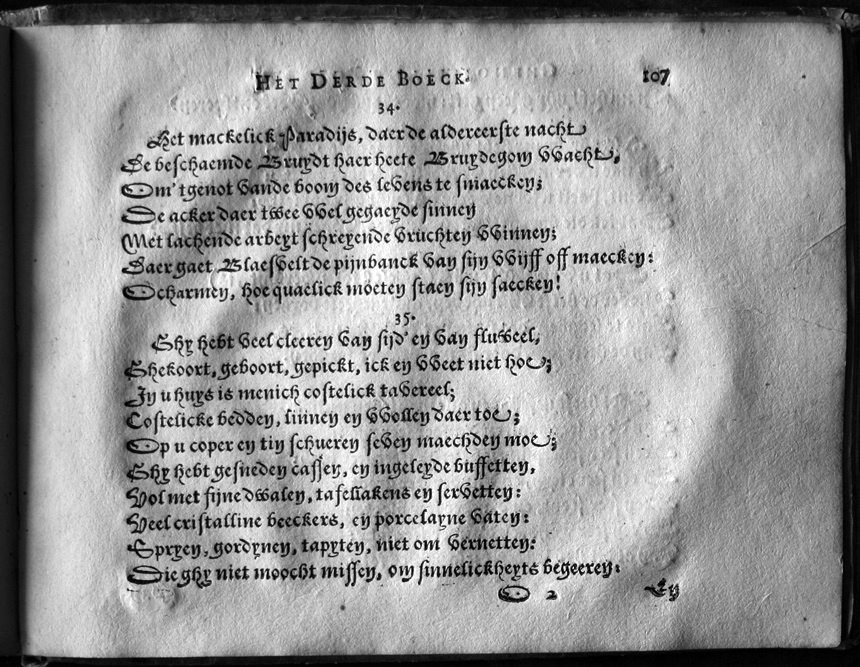 HET DERDE BOECK. 107
34.
Het mackelick Paradijs, daer de aldereerste nacht
De beschaemde Bruydt haer heete Bruydegom wacht,
Om 't genot vande boom des levens te smaecken;
De acker daer twee wel gegaeyde sinnen
Met lachende arbeyt schreyende vruchten winnen;
Daer gaet Blaesvelt de pijnbanck van sijn wijff off maecken:
O charmen, hoe quaelick moeten staen sijn saecken!
35.
Ghy hebt veel cleeren van sijd' en van fluweel,
Ghekoort, geboort, gepickt, ick en weet niet hoe;
In u huys is menich costelick tavereel;
Costelicke bedden, linnen en wollen daer toe;
Op u coper en tin schueren seven maechden moe;
Ghy hebt gesneden cassen, en ingeleyde buffetten,
Vol met fijne dwalen, tafellakens en servetten:
Veel cristalline beeckers, en porcelayne vaten:
Spreyen, gordynen, tapyten, niet om vernetten:
Die ghy niet moocht missen, om sinnelickheyts begeeren:
O 2 En